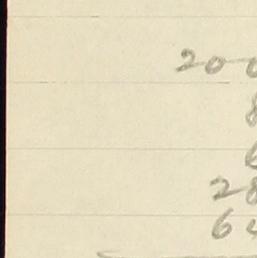 200
8
6
28
64